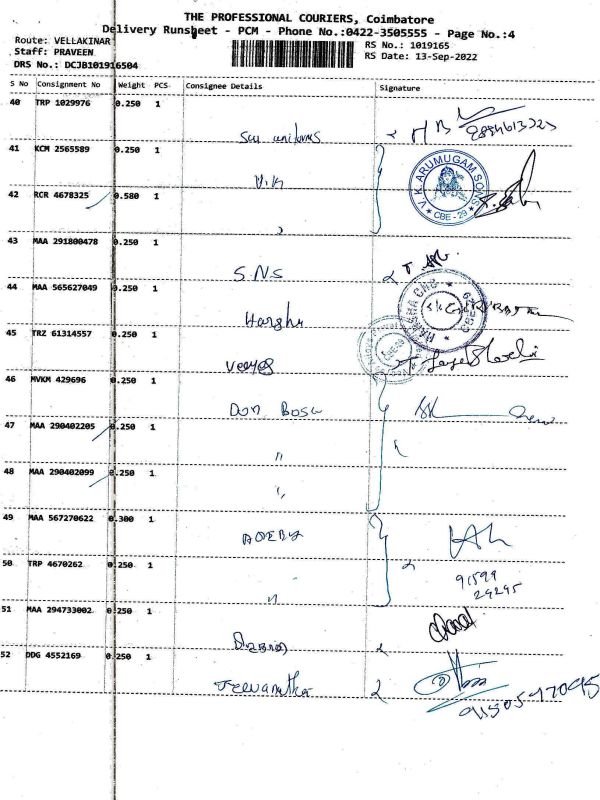 THE PROFESSIONAL COURIERS, Coimbatore
Delivery Runsheet - PCM - Phone No.:0422-3505555 - Page No.:4
Route: VELLAKINAR
RS No.: 1019165
Staff: PRAVEEN
RS Date: 13-Sep-2022
DRS No.: DCJB101916504
S No Consignment No Weight PCS Consignee Details Signature
40 TRP 1029976 0.250 1
41 KCM 2565589 0.250 1
V.K
V.K. ARUMUGAM SONS
* CBE - 29 *
42 RCR 4678325 0.580 1
"
43 MAA 291800478 0.250 1
S.N.S
44 MAA 565627049 0.250 1
Harsha
45 TRZ 61314557 0.250 1
46 MVKM 429696 0.250 1
Don Bosco
47 MAA 290402205 0.250 1
"
48 MAA 290402099 0.250 1
"
49 MAA 567270622 0.300 1
50 TRP 4670262 0.250 1
"
91599
29295
51 MAA 294733002 0.250 1
52 DDG 4552169 0.250 1
9150597095